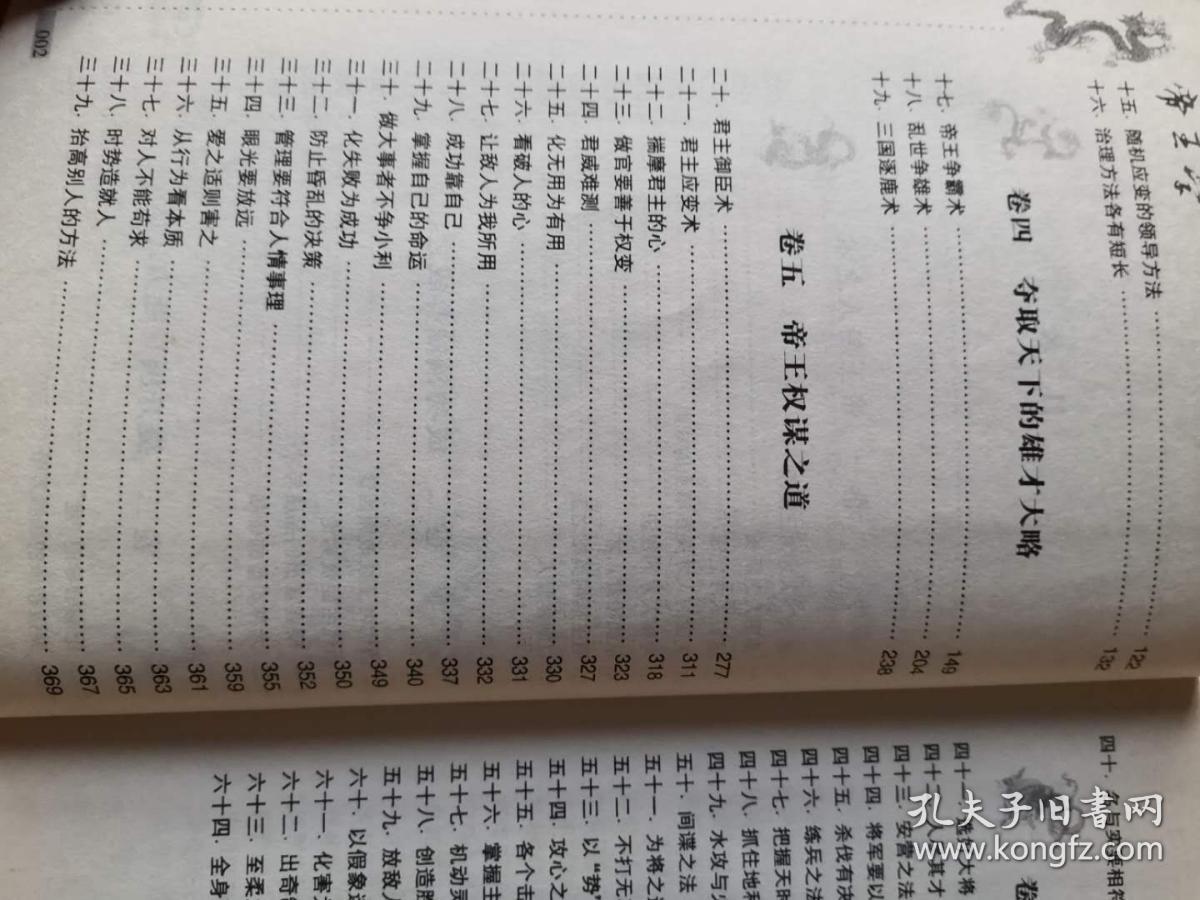 帝王学
十五. 随机应变的领导方法
十六. 治理方法各有短长
卷四 夺取天下的雄才大略
十七. 帝王争霸术 149
十八. 乱世争雄术 204
十九. 三国逐鹿术 238
卷五 帝王权谋之道
二十. 君主御臣术 277
二十一. 君主应变术 311
二十二. 揣摩君主的心 318
二十三. 做官要善于权变 323
二十四. 君威难测 327
二十五. 化无用为有用 330
二十六. 看破人的心 331
二十七. 让敌人为我所用 332
二十八. 成功靠自己 337
二十九. 掌握自己的命运 340
三十. 做大事者不争小利 349
三十一. 化失败为成功 350
三十二. 防止昏乱的决策 352
三十三. 管理要符合人情事理 355
三十四. 眼光要放远 359
三十五. 爱之适则害之 361
三十六. 从行为看本质 363
三十七. 对人不能苟求 365
三十八. 时势造就人 367
三十九. 抬高别人的方法 369
002
四十. 名与实要相符
卷
四十一. 选择大将
四十二. 人尽其才
四十三. 安营之法
四十四. 将军要以
四十五. 杀伐有决
四十六. 练兵之法
四十七. 把握天时
四十八. 抓住地利
四十九. 水攻与火
五十. 间谍之法
五十一. 为将之道
五十二. 不打无
五十三. 以“势”
五十四. 攻心之
五十五. 各个击
五十六. 掌握主
五十七. 机动灵
五十八. 创造胜
五十九. 放敌人
六十. 以假象迷
六十一. 化害为
六十二. 出奇制
六十三. 至柔
六十四. 全身
孔夫子旧书网
kongfz.com